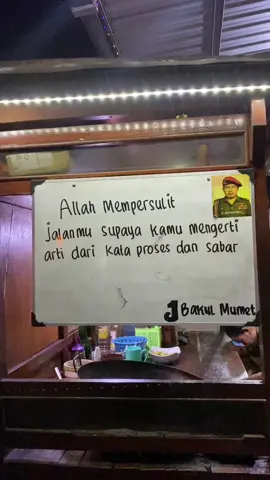 Allah Mempersulit
jalanmu supaya kamu mengerti
arti dari kata proses dan sabar
Bakul Mumet